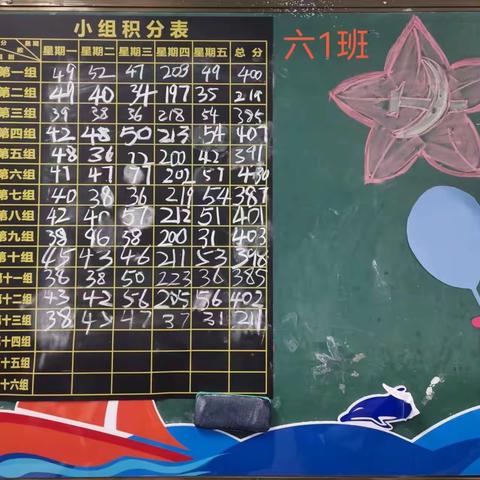 小组积分表
六1班
星期一 星期二 星期三 星期四 星期五 总分
第一组 49 52 47 203 49 400
第二组 49 40 34 197 35 219
第三组 39 38 36 218 54 385
第四组 42 48 50 213 54 407
第五组 48 36 200 42 391
第六组 47 47 202 57 430
第七组 40 38 36 219 54 387
第八组 42 212 51 401
第九组 38 46 38 200 31 403
第十组 45 43 46 211 53 398
第十一组 38 38 50 223 36 385
第十二组 43 42 56 56 402
第十三组 38 47 37 31 211
第十四组
十五组
十六组